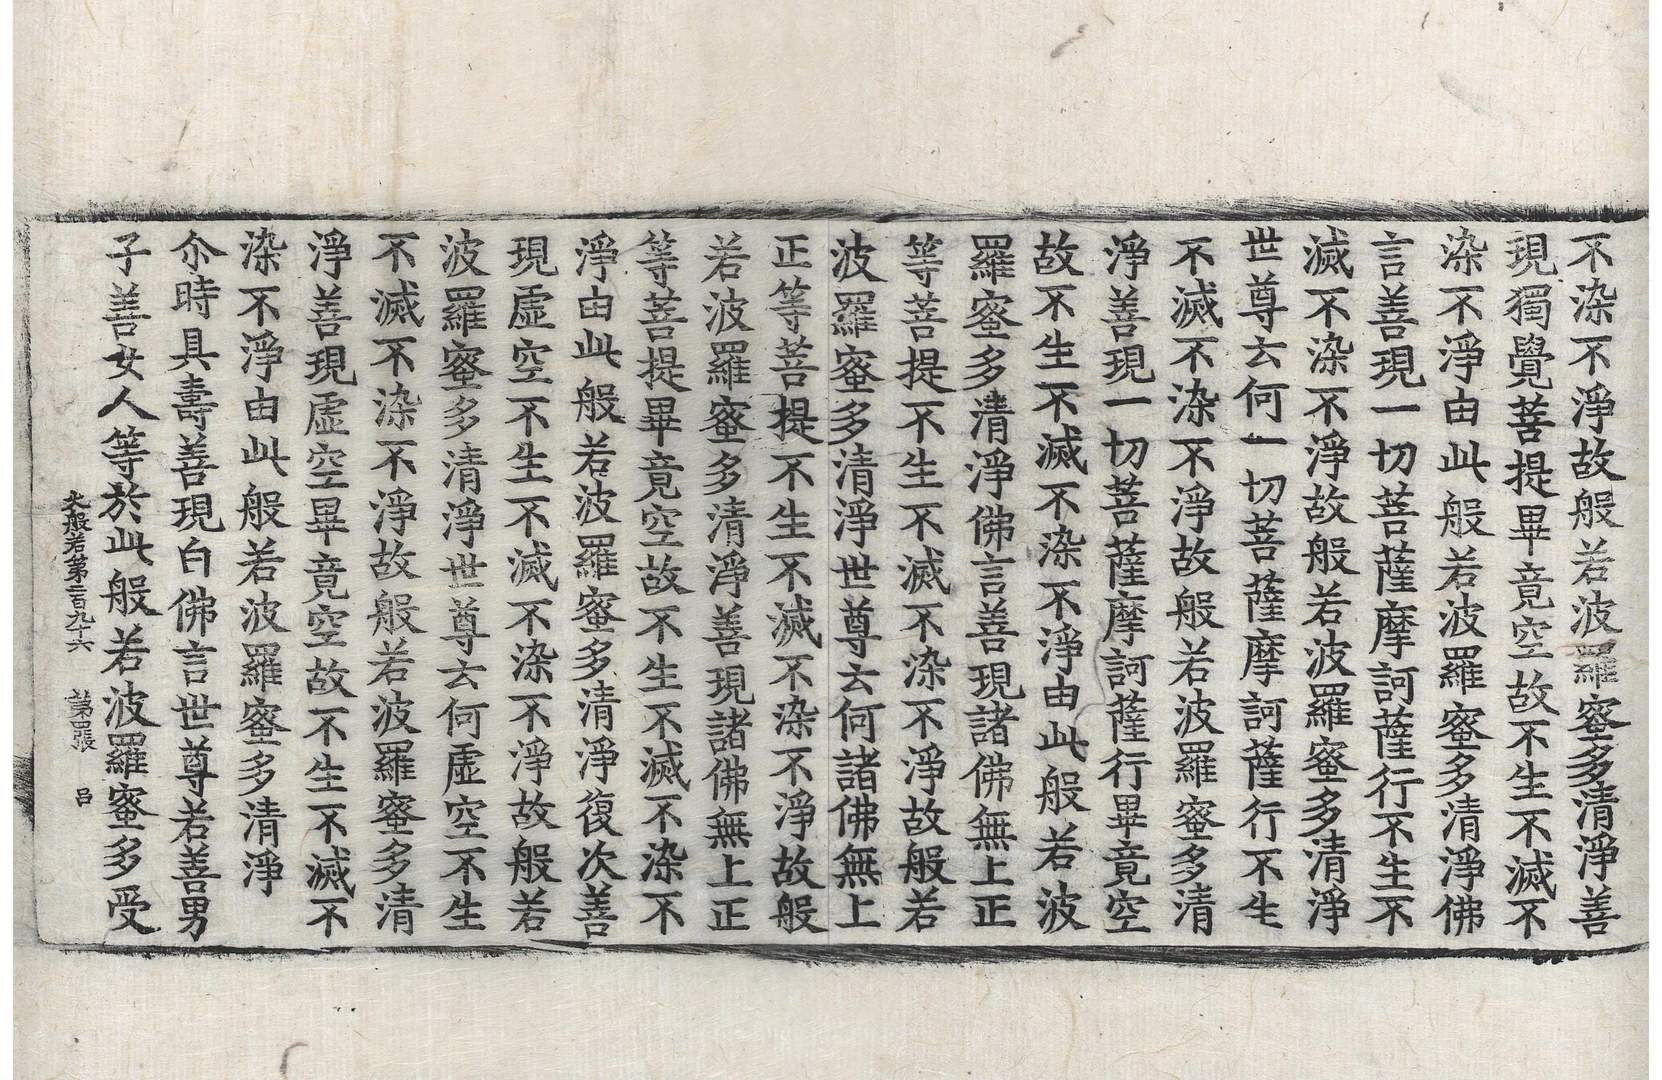 不染不淨故般若波羅蜜多清淨善
現獨覺菩提畢竟空故不生不滅不
染不淨由此般若波羅蜜多清淨佛
言善現一切菩薩摩訶薩行不生不
滅不染不淨故般若波羅蜜多清淨
世尊云何一切菩薩摩訶薩行不生
不滅不染不淨故般若波羅蜜多清
淨善現一切菩薩摩訶薩行畢竟空
故不生不滅不染不淨由此般若波
羅蜜多清淨佛言善現諸佛無上正
等菩提不生不滅不染不淨故般若
波羅蜜多清淨世尊云何諸佛無上
正等菩提不生不滅不染不淨故般
若波羅蜜多清淨善現諸佛無上正
等菩提畢竟空故不生不滅不染不
淨由此般若波羅蜜多清淨復次善
現虛空不生不滅不染不淨故般若
波羅蜜多清淨世尊云何虛空不生
不滅不染不淨故般若波羅蜜多清
淨善現虛空畢竟空故不生不滅不
染不淨由此般若波羅蜜多清淨
尒時具壽善現白佛言世尊若善男
子善女人等於此般若波羅蜜多受
大般若第二百九十六 第四張 呂